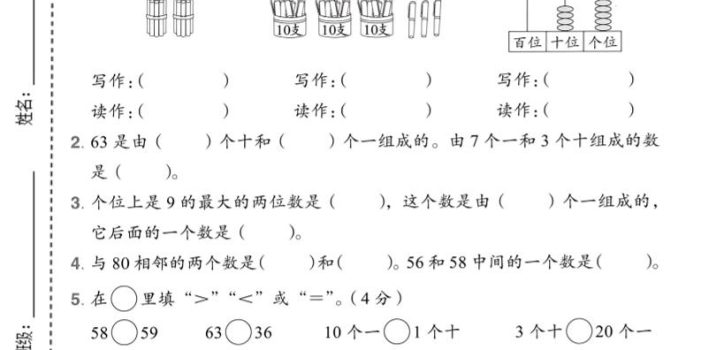 10支 10支 10支
百位 十位 个位
写作:( ) 写作:( ) 写作:( )
读作:( ) 读作:( ) 读作:( )
2. 63 是由 ( ) 个十和 ( ) 个一组成的。由 7 个一和 3 个十组成的数
是 ( )。
3. 个位上是 9 的最大的两位数是 ( ), 这个数是由 ( ) 个一组成的,
它后面的一个数是 ( )。
4. 与 80 相邻的两个数是( )和( )。56 和 58 中间的一个数是( )。
5. 在○里填“>”“<”或“=”。(4 分)
58○59 63○36 10 个一○1 个十 3 个十○20 个一
姓名: